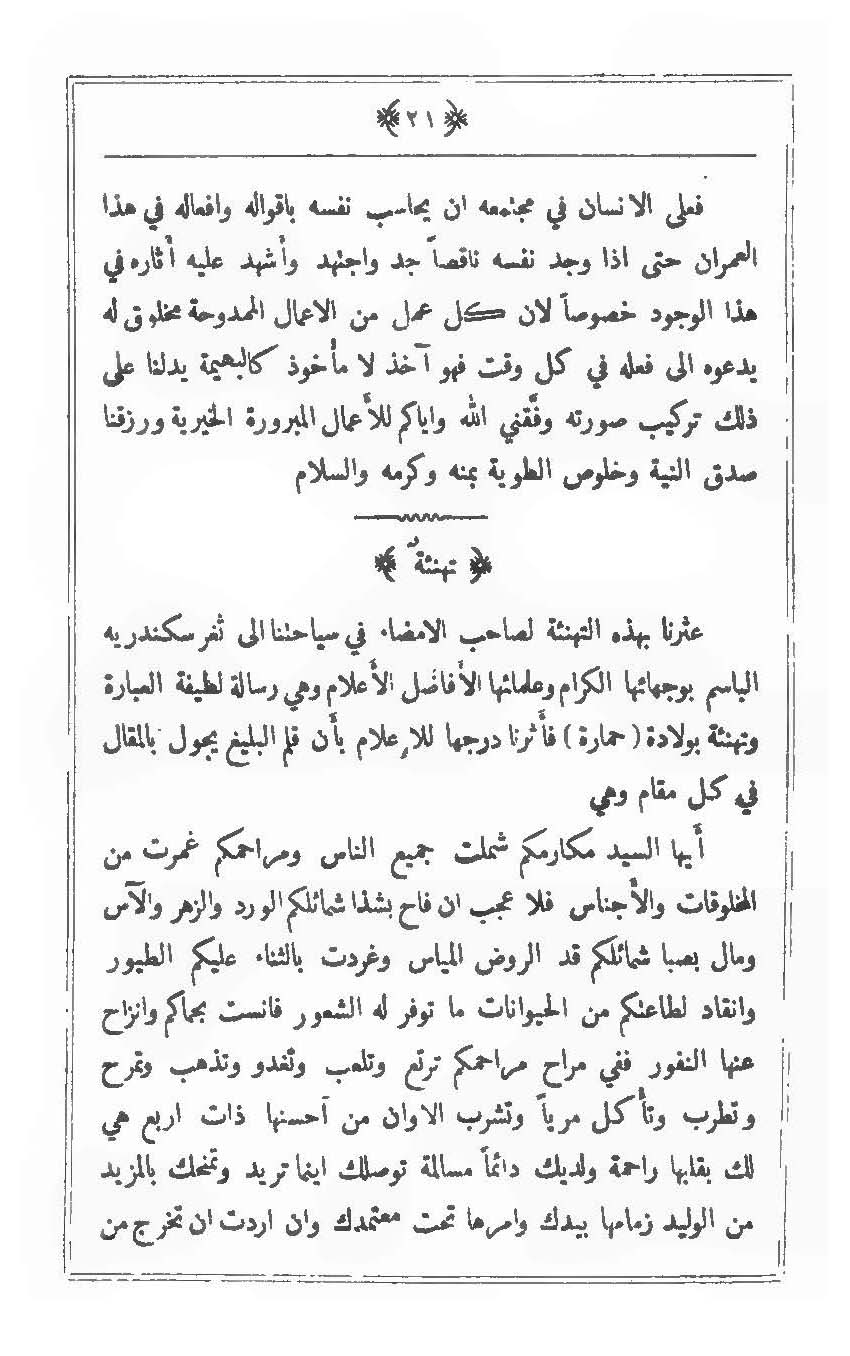 ﴿ ٢١ ﴾
فعلى الانسان في مجتمعه ان يحاسب نفسه باقواله وافعاله في هذا
العمران حتى اذا وجد نفسه ناقصاً جد واجتهد وأشهد عليه أثاره في
هذا الوجود خصوصاً لان كل عمل من الاعمال الممدوحة مخلوق له
يدعوه الى فعله في كل وقت فهو آخذ لا مأخوذ كالبهيمة يدلنا على
ذلك تركيب صورته وفَّقني الله واياكم للأعمال المبرورة الخيرية ورزقنا
صدق النية وخلوص الطوية بمنه وكرمه والسلام
﴿ تهنئة ﴾
عثرنا بهذه التهنئة لصاحب الامضاء في سياحتنا الى ثغر سكندريه
الباسم بوجهائها الكرام وعلمائها الأفاضل الأعلام وهي رسالة لطيفة العبارة
وتهنئة بولادة (حمارة) فأثرنا درجها للإعلام بأن قلم البليغ يجول بالمقال
في كل مقام وهي
أيها السيد مكارمكم شملت جميع الناس ومراحمكم غمرت من
المخلوقات والأجناس فلا عجب ان فاح بشذا شمائلكم الورد والزهر والآس
ومال بصبا شمائلكم قد الروض المياس وغردت بالثناء عليكم الطيور
وانقاد لطاعتكم من الحيوانات ما توفر له الشعور فانست بحماكم وانزاح
عنها النفور ففي مراح مراحمكم ترتع وتلعب وتغدو وتذهب وتمرح
وتطرب وتأكل مرياً وتشرب الاوان من آحسنها ذات اربع هي
لك بقلبها راحمة ولديك دائماً مسالمة توصلك اينما تريد وتمنحك بالمزيد
من الوليد زمامها بيدك وامرها تحت معتمدك وان اردت ان تخرج من